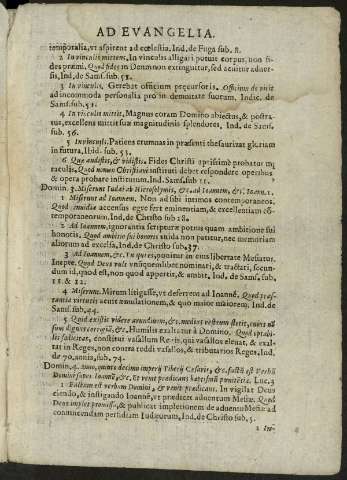 AD EVANGELIA.
temporalia, vt aspirent ad cœlestia. Ind. de Fuga sub. 8.
2 In vinculis mittens. In vinculis alligari potuit corpus, non fi-
des præmi. Quod fides in Deum non extinguitur, sed acuitur aduer-
sis, Ind. de Sams. sub. 55.
3 In vinculis. Gerebat officium præcursoris. Officium de vitæ
ad incommoda personalia pro in demeritate suorum. Indic. de
Sams. sub. 51.
4 In vinculis mittit. Magnus coram Domino abiectus, & postra-
tus, excellens mittit suæ magnitudinis splendores, Ind. de Sams.
sub. 56.
5 In vinculis. Patiens ærumnas in præsenti thesaurizat gloriam
in futura, Ibid. sub. 53.
6 Quæ audistis, & vidistis. Fides Christi aptissimè probatur mi
raculis. Quod nouus Christiani instituti debet respondere operibus
& opera probare institutum, Ind. de Sams. sub. 11.
Domin. 3. Miserunt Iudæi ab Hierosolymis, &c. ad Ioannem, &c. Ioann. 1.
1 Miserunt ad Ioannem. Non ad sibi intimos contemporaneos.
Quod inuidia accensus ægre fert eminentiam, & excellentiam cō-
temporaneorum, Ind. de Christo sub 28.
2 Ad Ioannem, ignorantia scripturæ potius quam ambitione sui
honoris. Quod ambitio sui honoris auida non putatur, nec memoriam
aliorum ad excelsa, Ind. de Christo sub. 37.
3 Ad Ioannem, &c. Tu quis es, ponitur in eius libertate Messiatus.
Inepte. Quod Deus vult vnūquenque libere nominari, & tractari, secun-
dum id, quod est, non quod appetit, & ambit, Ind. de Sams. sub.
11. & 12.
4 Miserunt. Mirum litigasse, vt deferrent ad Ioannē. Quod præ-
stantia virtutis acuit æmulationem, & quo maior maiorem. Ind. de
Sams. sub. 24.
5 Quod existis videre arundinem, &c. medius vestrum stetit, cuius nō
sum dignus corrigiā, &c. Humilis exaltatur à Domino. Quod opta-
bilis felicitat, constitui vasallum Regis, qui vasallos eleuat, & exal-
tat in Reges, non contra reddi vasallos, & tributarios Reges, Ind.
de 70. annis, sub. 74.
Domin. 4. Anno quinto decimo imperij Tiberij Cæsaris, &c. factū est Verbū
Domini super Ioannē, &c. Et venit prædicans baptismū pœnitētiæ. Luc. 3
1 Factum est verbum Domini, & venit prædicans. In vigilat Deus
ciendo, & instigando Ioannē, vt prædicet aduentum Messiæ. Quod
Deus implet promissa, & publicat impletionem de aduentu Messiæ ad
conuincendam perfidiam Iudæorum, Ind. de Christo sub. 5.
2 In-